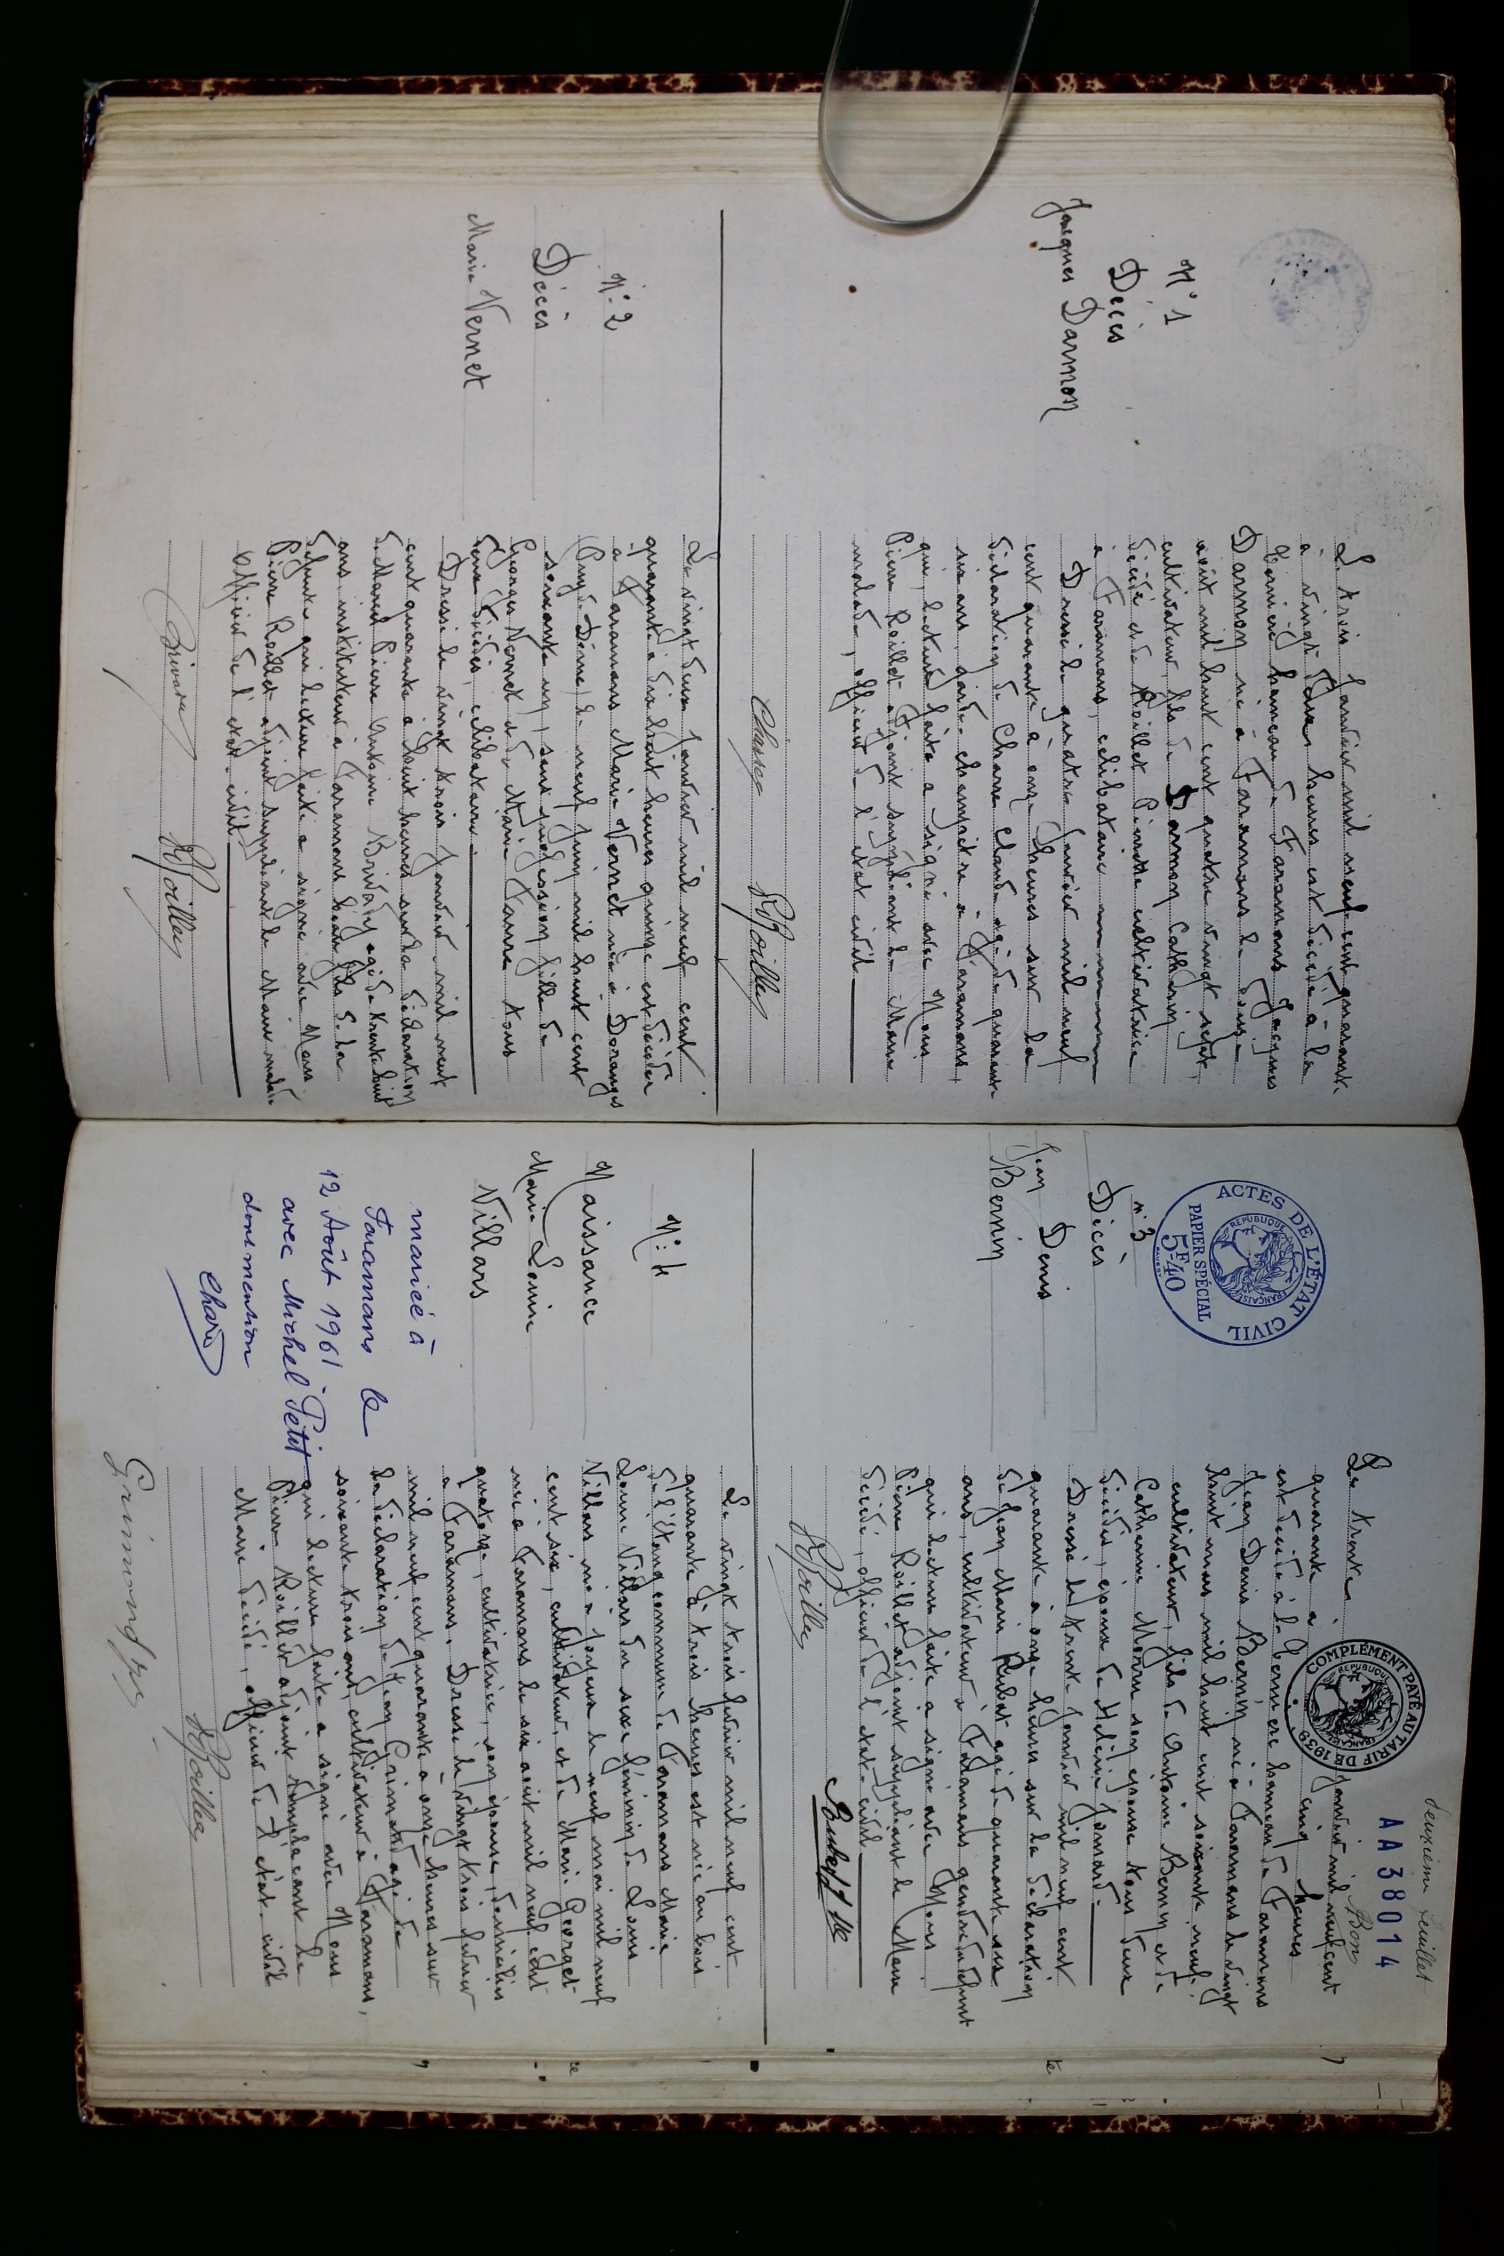 N° 1
Décès
Jacques Darmon
Le trois Janvier mil neuf cent quarante
à vingt deux heures est décédé à la
Verniere hameau de Faramans Jacques
Darmon né à Faramans le douze
août mil huit cent quatre vingt sept,
cultivateur, fils de Darmon Catherin
décédé et de Roillet Pierrette cultivatrice
à Faramans, célibataire
Dressé le quatre Janvier mil neuf
cent quarante à onze heures sur la
déclaration de Charre Claude agé de quarante
six ans, garde champêtre à Faramans,
qui, lecture faite a signé avec Nous
Pierre Roillet adjoint suppléant le Maire
malade, officier de l'état civil
Roillet
N° 2
Décès
Marie Vernet
Le vingt deux Janvier mil neuf cent
quarante à dix huit heures quinze est décédée
à Faramans Marie Vernet née à Doranges
(Puy-de-Dôme) le neuf Juin mil huit cent
soixante un, sans profession fille de
Georges Vernet et de Marie Farre tous
deux décédés, célibataire
Dressé le vingt trois Janvier mil neuf
cent quarante à huit heures sur la déclaration
de Marcel Pierre Antoine Brivary agé de trente huit
ans instituteur à Faramans beau fils de la
défunte qui lecture faite a signé avec Nous
Pierre Roillet adjoint suppléant le Maire malade
Officier de l'état-civil
Roillet
deuxième feuillet
AA38014
ACTES DE L'ÉTAT CIVIL
RÉPUBLIQUE FRANÇAISE
PAPIER SPÉCIAL
5F40
COMPLÉMENT PAYÉ AU TARIF DE 1939
RÉPUBLIQUE FRANÇAISE
Bon
n° 3
Décès
Jean Denis
Bernin
Le trente Janvier mil neuf cent
quarante à cinq heures
est décédé à la Verniere hameau de Faramans
Jean Denis Bernin né à Faramans le vingt
huit mars mil huit cent soixante neuf,
cultivateur, fils de Antoine Bernin et de
Catherine Morin son épouse tous deux
décédés, époux de Hélène Jomard.
Dressé le trente Janvier mil neuf cent
quarante à onze heures sur la déclaration
de Jean Marie Rubat agé de quarante six
ans, cultivateur à Faramans gendre du défunt
qui lecture faite a signé avec Nous
Pierre Roillet adjoint suppléant le Maire
décédé, officier de l'état-civil
Roillet
N° 4
Naissance
Marie-Louise
Villars
Le vingt trois février mil neuf cent
quarante à trois heures est née au bois
de l'étang commune de Faramans Marie
Louise Villars du sexe féminin de Louis
Villars né à Joyeux le neuf mai mil neuf
cent six, cultivateur, et de Marie Georget
née à Faramans le six août mil neuf cent
quatorze, cultivatrice, son épouse, domiciliés
à Faramans. Dressé le vingt trois février
mil neuf cent quarante à onze heures sur
la déclaration de Jean Grimond agé de
soixante trois ans, cultivateur à Faramans,
qui lecture faite a signé avec Nous
Pierre Roillet adjoint remplaçant le
Maire décédé, officier de l'état-civil
Roillet
mariée à
Faramans le
12 Août 1961
avec Michel Petit
dont mention